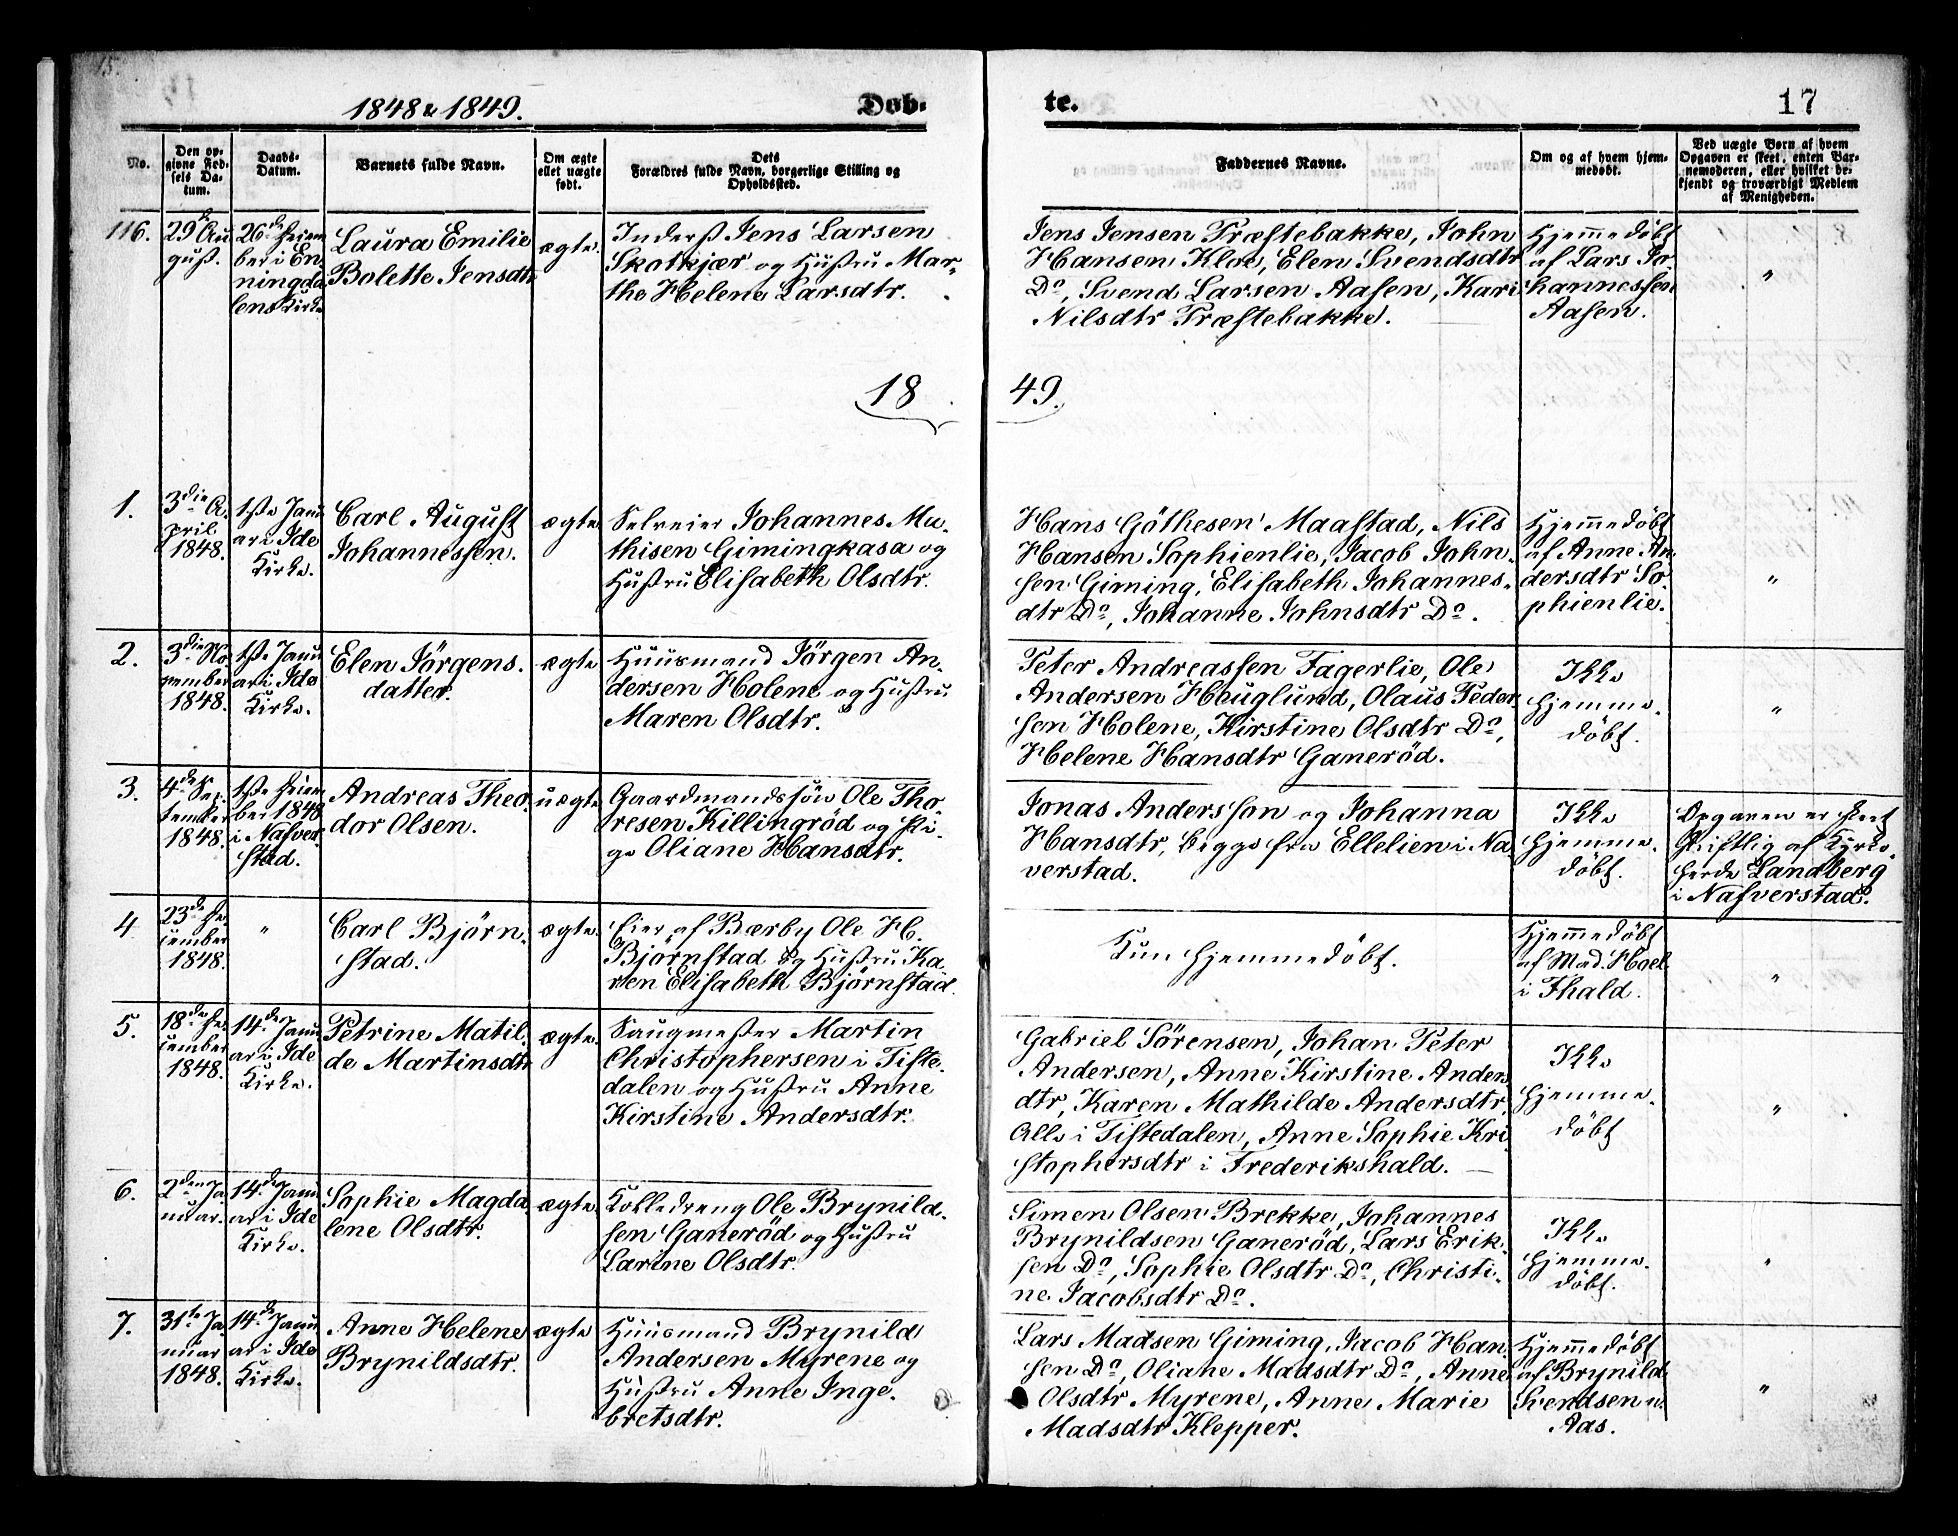 15.
1848 & 1849.
Døb-
te.
17
No.
Den op-
givne Fød-
sels Da-
tum.
Daabs-
Datum.
Barnets fulde Navn.
Om ægte
ellet uægte
født.
Dets
Forældres fulde Navn, borgerlige Stilling og
Opholdssted.
Faddernes Navne.
Om og af hvem hjem-
medøbt.
Ved uægte Børn af hvem
Opgaven er skeet, enten Bar-
nemoderen, eller hvilket be-
kjendt og troværdigt Medlem
af Menigheden.
116.
29de Au
gust.
26de Decem
ber i En
ningda
lens Kirke
Laura Emilie
Bolette Jensdtr
ægte.
Inderst Jens Larsen
Skotkjær og Hustru Mar-
the Helene Larsdtr.
Jens Jensen Træstebakke, John
Hansen Kloe, Elen Svendsdtr
Do, Svend Larsen Aasen, Kari
Nilsdtr Træstebakke.
Hjemmedøbt
af Lars Jo
hannessen
Aasen.
"
18
49.
1.
3die A-
pril
1848.
1ste Janu
ar i Ide
Kirke.
Carl August
Johannessen.
ægte
Selveier Johannes Ma-
thisen Gimingkasa og
Hustru Elisabeth Olsdtr.
Hans Göthesen Maastad, Nils
Hansen Sophienlie, Jacob John-
sen Giming, Elisabeth Johannes-
dtr Do, Johanne Johnsdtr Do.
Hjemmedøbt
af Anne An
dersdtr So-
phienlie.
"
2.
3die No-
vember
1848.
1ste Janu
ar i Ide
Kirke.
Elen Jörgens-
datter.
ægte
Huusmand Jörgen An-
dersen Holene og Hustru
Maren Olsdtr.
Peter Andreassen Fagerlie, Ole
Andersen Hauglund, Olaus Peder
sen Holene, Kirstine Olsdtr Do,
Helene Hansdtr Ganeröd.
Ikke
hjemme-
døbt.
"
3.
4de Sep-
tember
1848.
1ste Decem
ber 1848
i Nafver
stad.
Andreas Theo-
dor Olsen.
uægte
Gaardmandssön Ole Tho-
resen Killingröd og Pi-
ge Oliane Hansdtr.
Jonas Andersson og Johanna
Hansdtr, begge fra Ellelien i Na
verstad.
Ikke
hjemme-
døbt.
Opgaven er skeet
skriftlig af Kyrko-
herde Landberg
i Nafverstad.
4
23de De-
cember
1848.
"
Carl Björn-
stad.
ægte.
Eier af Bærby Ole H.
Björnstad og Hustru Ka
ren Elisabeth Björnstad.
Kun hjemmedøbt.
Hjemmedøbt
af Mad. Hoel
i Fhald.
"
5.
18de De
cember
1848.
14de Janu
ar i Ide
Kirke.
Petrine Matil-
de Martinsdtr
ægte.
Saugmester Martin
Christophersen i Tiste-
dalen og Hustru Anne
Kirstine Andersdtr.
Gabriel Sörensen, Johan Peter
Andersen, Anne Kirstine Anders
dtr, Karen Mathilde Andersdtr,
Alle i Tistedalen, Anne Sophie Kri
stophersdtr i Frederikshald.
Ikke
hjemme-
døbt
"
6.
2den Ja
nuar.
14de Janu
ar i Ide
Kirke.
Sophie Magda
lene Olsdtr.
ægte.
Kobledreng Ole Brynild-
sen Ganeröd og Hustru
Larine Olsdtr.
Simen Olsen Brekke, Johannes
Brynildsen Ganeröd, Lars Erik-
sen Do, Sophie Olsdtr Do, Christi-
ne Jacobsdtr Do.
Ikke
hjemme-
døbt.
"
7.
31te Ja
nuar
1848.
14de Janu
ar i Ide
Kirke.
Anne Helene
Brynildsdtr.
ægte
Huusmand Brynild
Andersen Myrene og
Hustru Anne Inge-
bretsdtr.
Lars Madsen Giming, Jacob Han-
sen Do, Oliane Madsdtr Do, Anne
Olsdtr Myrene, Anne Marie
Madsdtr Klepper.
Hjemmedøbt
af Brynild
Svendsen
Aas.
"